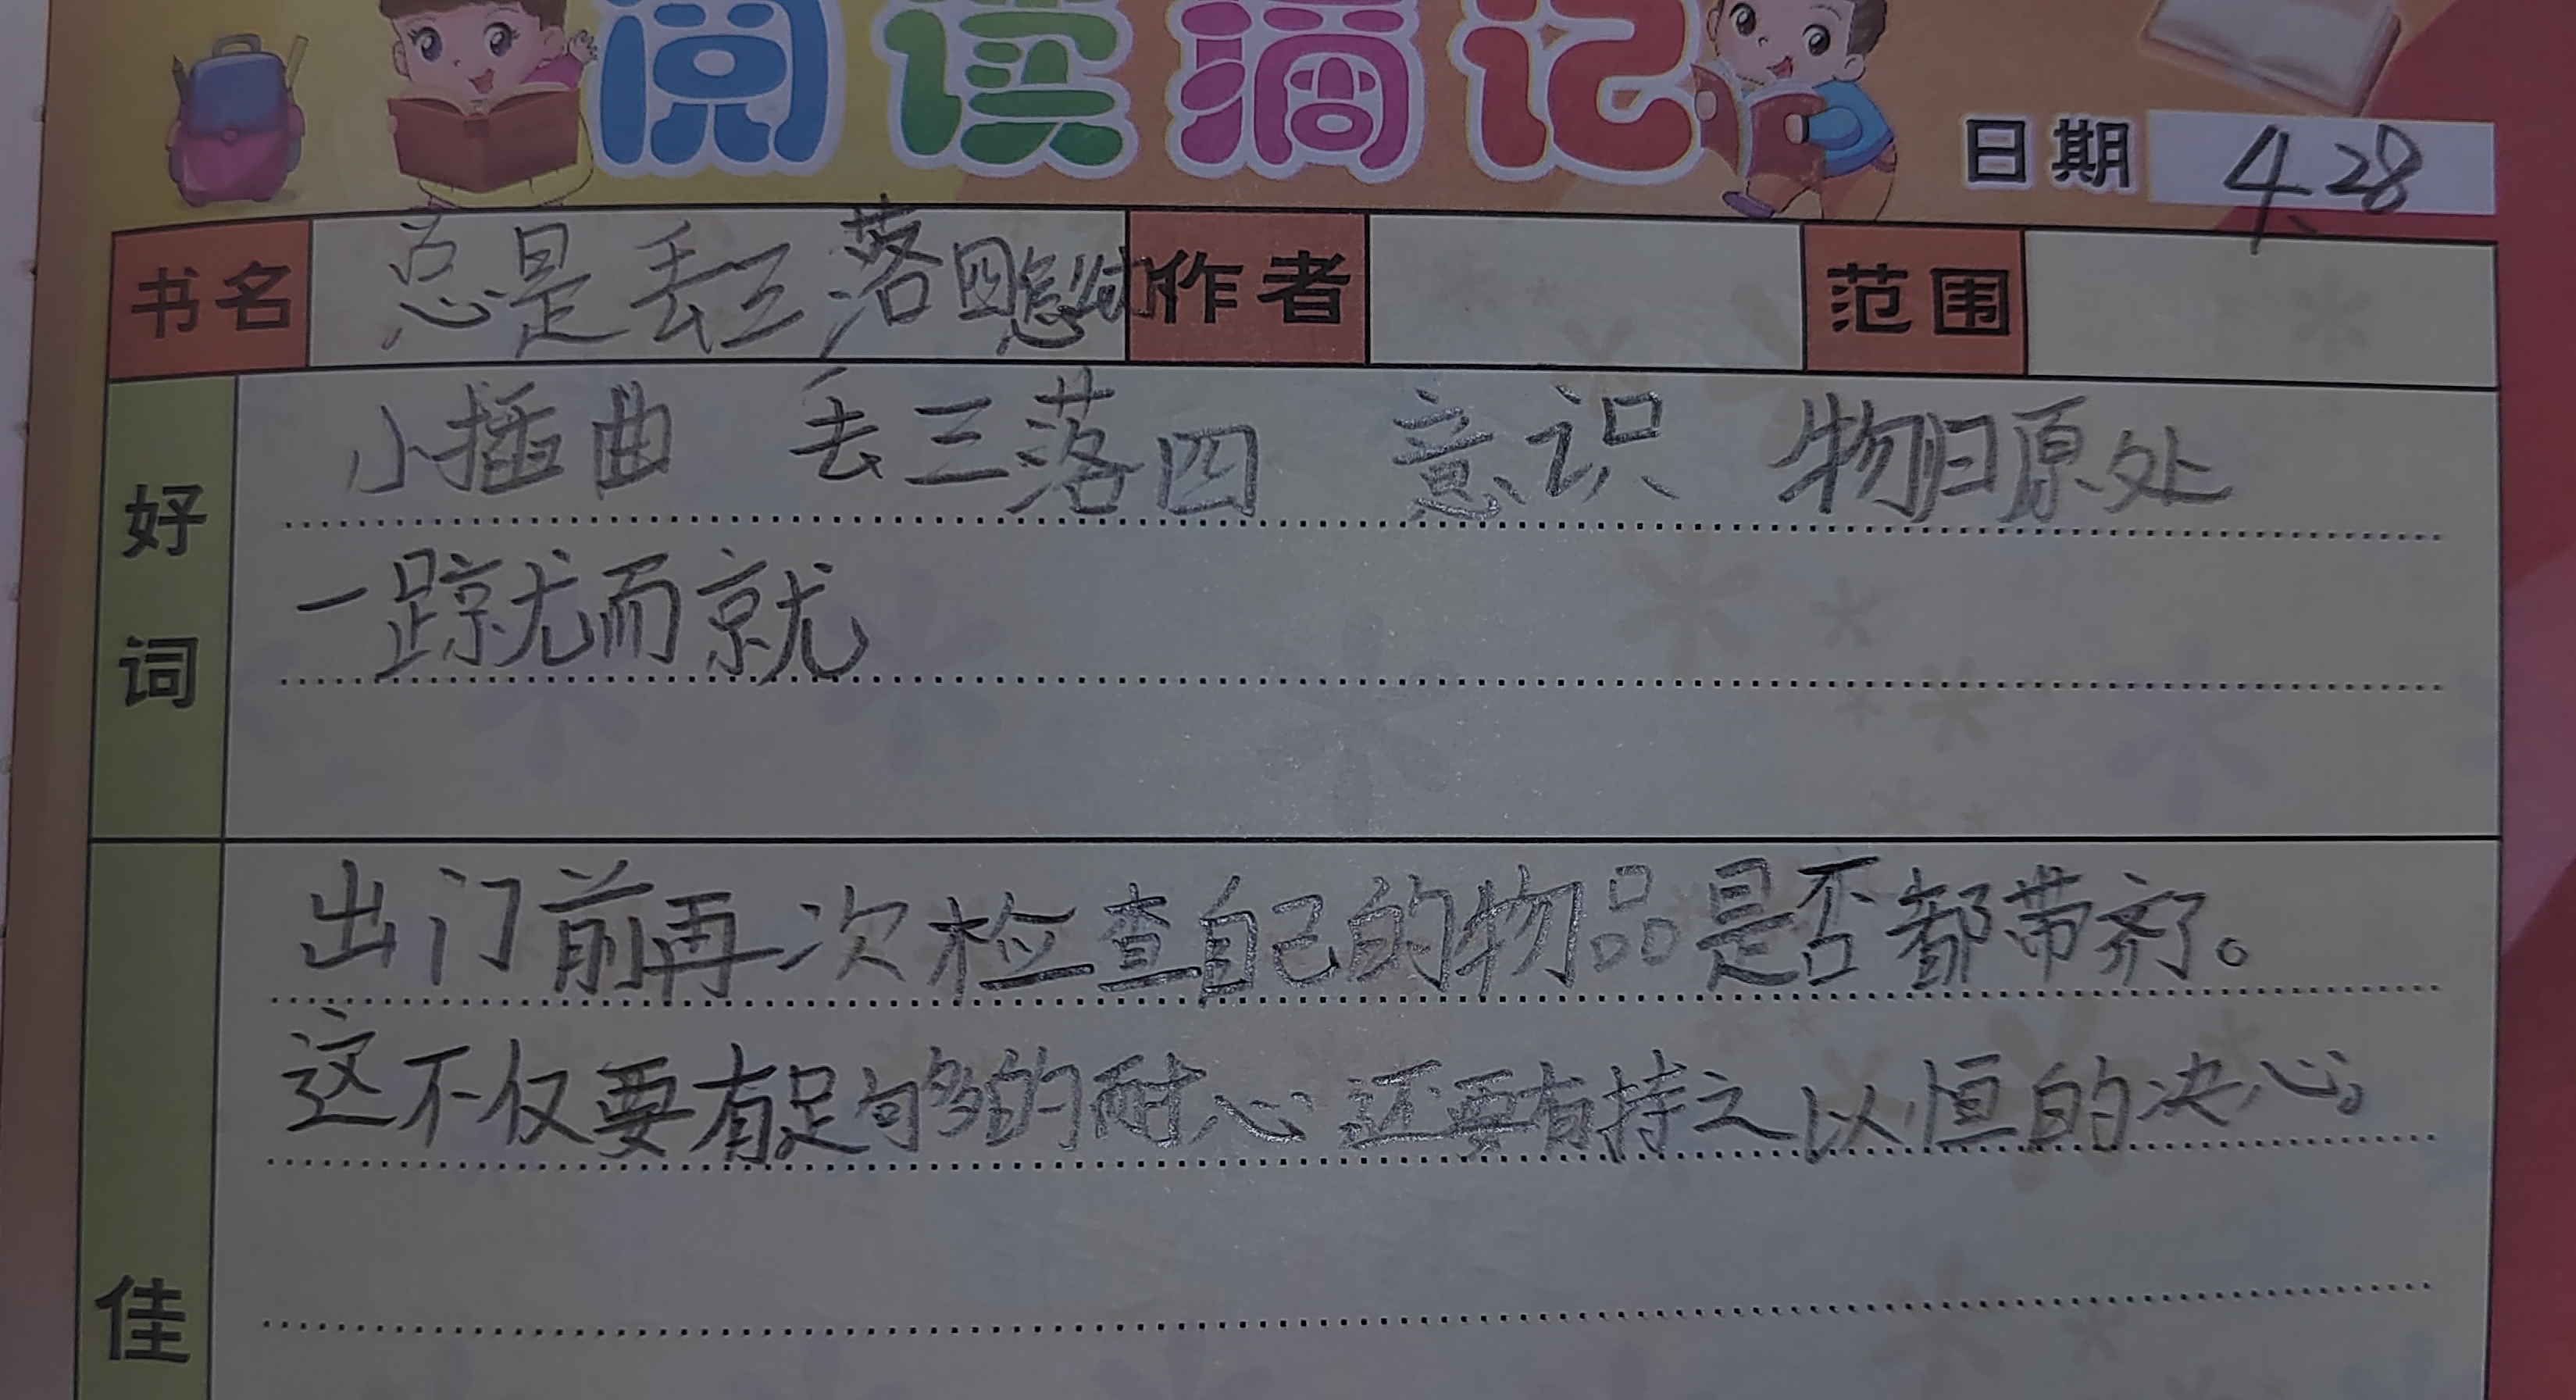 阅读摘记
日期 4.28
书名 总是丢三落四怎么办 作者 范围
好词
小插曲 丢三落四 意识 物归原处
一蹴而就
佳
出门前再次检查自己的物品是否都带齐了。
这不仅要有足够的耐心还要有持之以恒的决心。